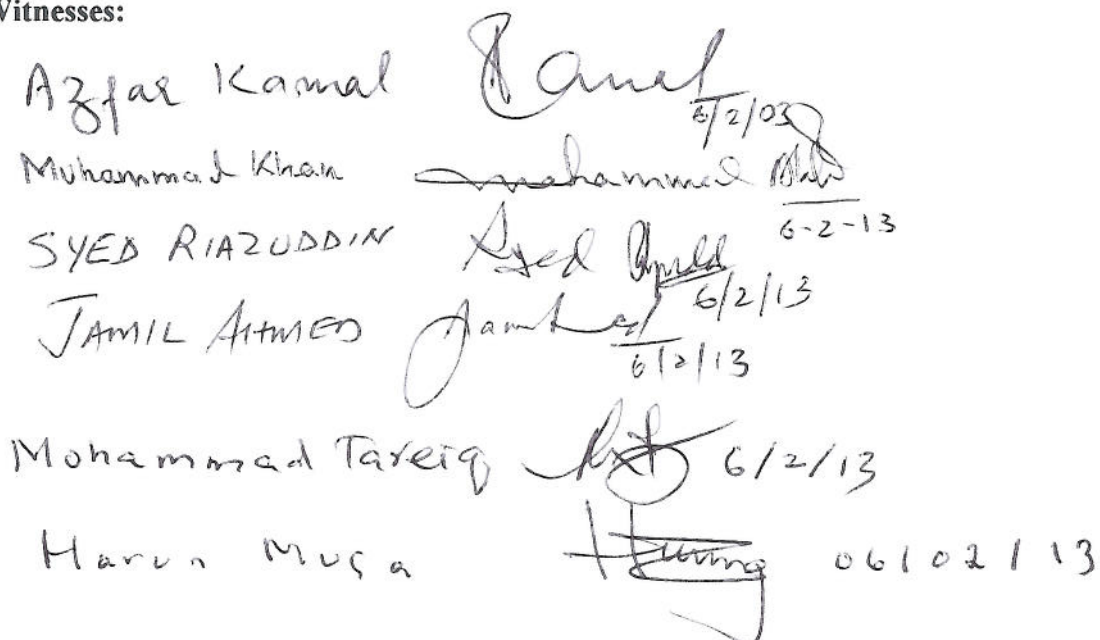 Witnesses:
Azfar Kamal Kamal 6/2/03
Muhammad Khan Mohammad 6-2-13
SYED RIAZUDDIN Syed 6/2/13
JAMIL AHMED 6/2/13
Mohammad Tareiq 6/2/13
Harun Musa 06/02/13